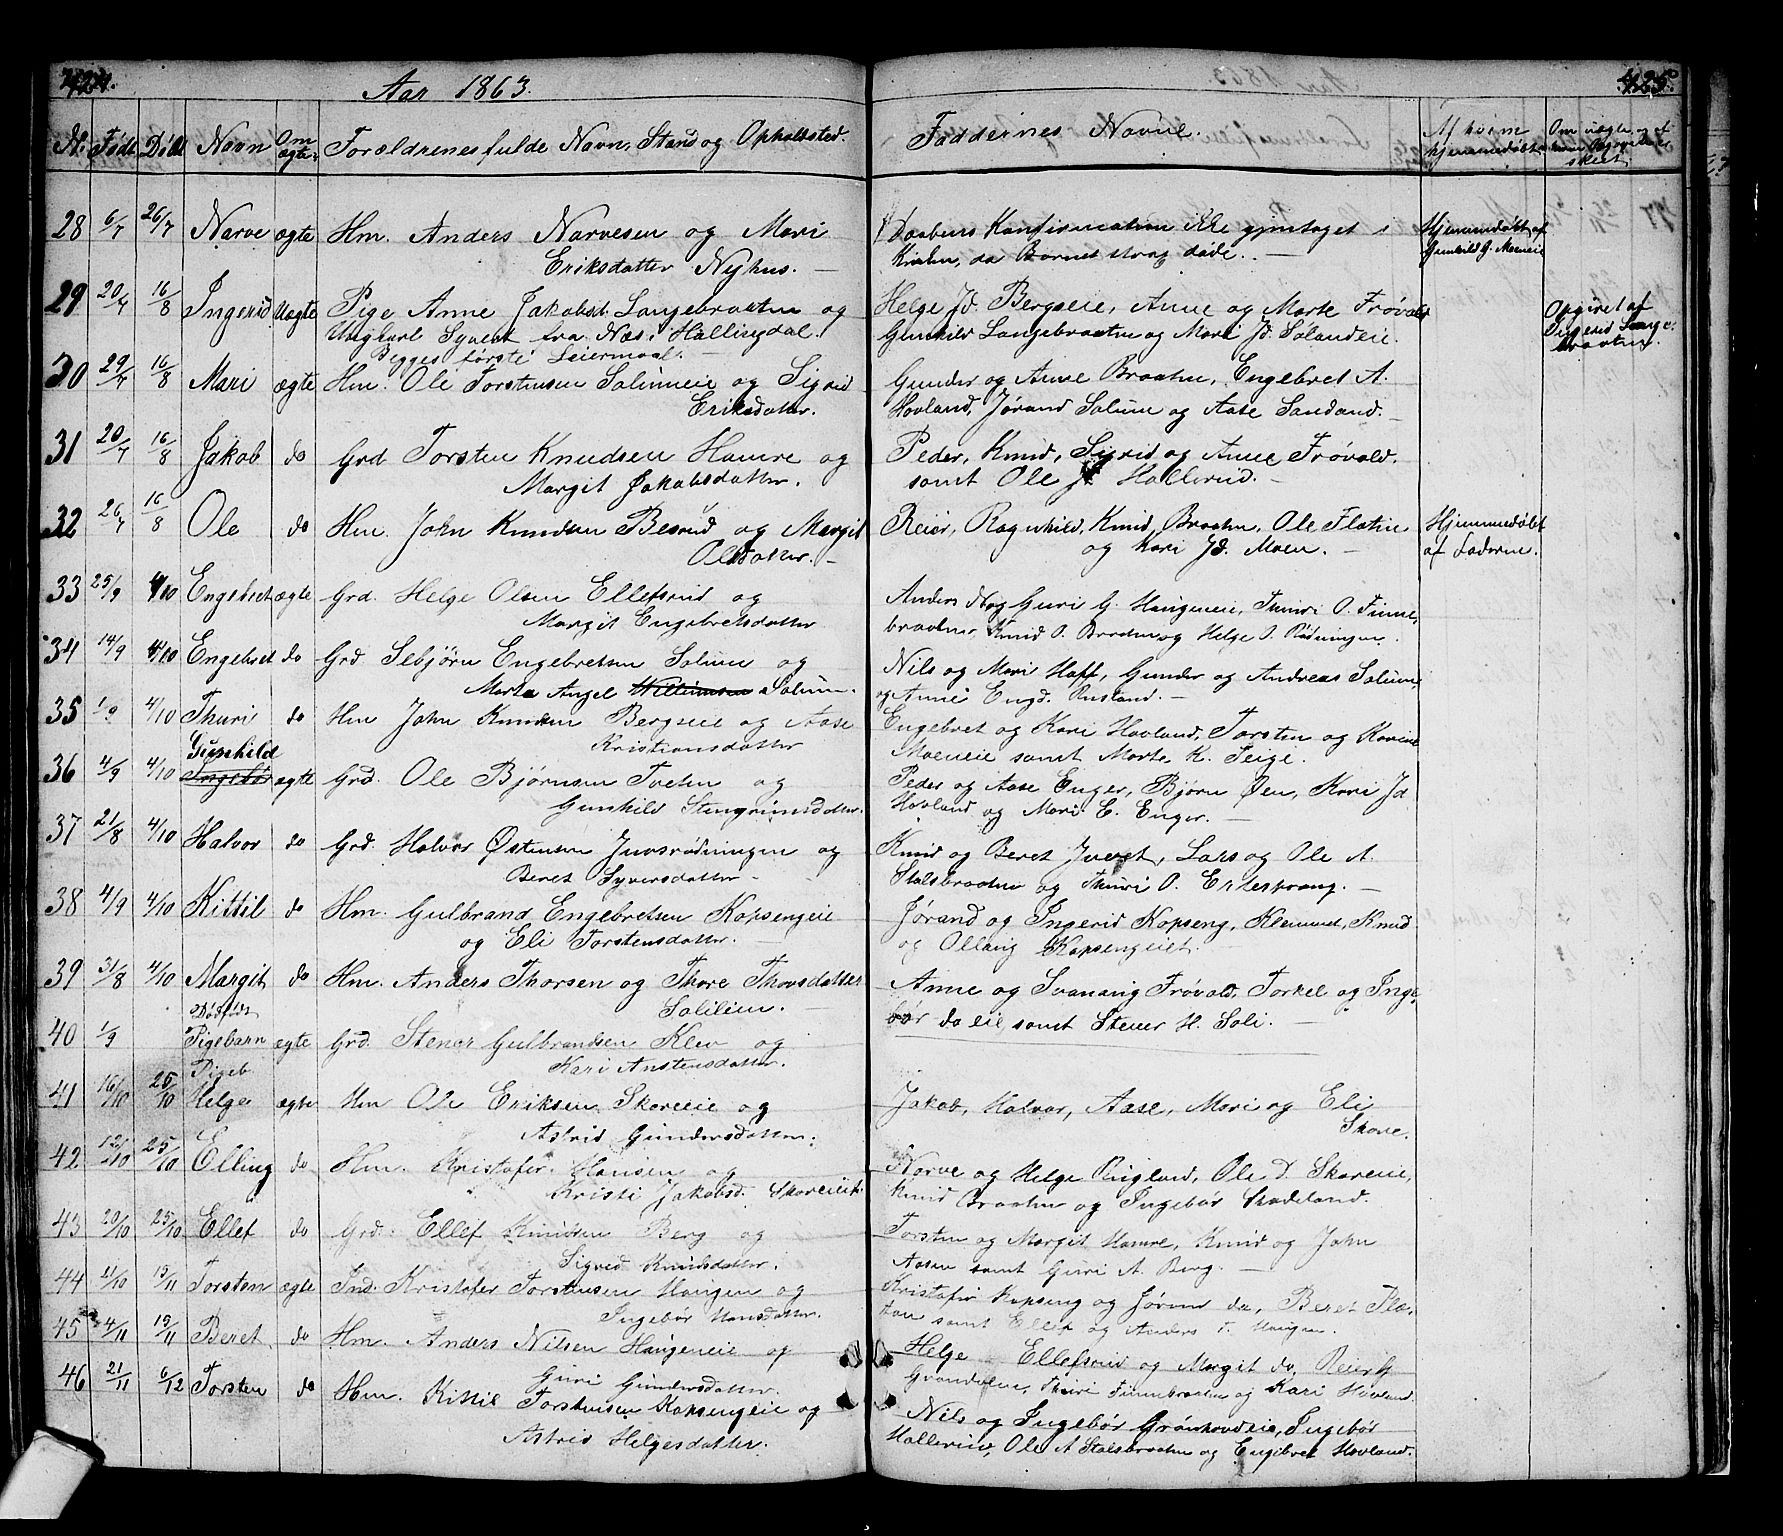 424. Aar 1863.
No Födt Döbt Navn Om ægte Forældrenes fulde Navn, Stand og Opholdsted.
28 6/7 26/7 Narve ægte Hm. Anders Narvesen og Mari
Eriksdatter Nyhus. —
29 20/7 16/8 Ingerid Uægte Pige Anne Jakobsd. Langebraaten og
Ungkarl Syvert fra Næs i Hallingdal.
Begges første Leiermaal. —
30 29/7 16/8 Mari ægte Hm. Ole Torstensen Salumeie og Sigrid
Eriksdatter.
31 20/7 16/8 Jakob do Grd Torsten Knudsen Hamre og
Margit Jakobsdatter.
32 26/7 16/8 Ole do Hm. John Knudsen Besrud og Margit
Olsdatter. —
33 25/9 4/10 Engebret ægte Grd. Helge Olsen Ellefsrud og
Margit Engebretsdatter
34 14/9 4/10 Engebret do Grd Sebjörn Engebretsen Salum og
Marte Angel Salum.
35 1/9 4/10 Thuri do Hm John Knudsen Bergseie og Aase
Kristiansdatter
Gunhild
36 4/9 4/10 Ingebör ægte Grd. Ole Bjørnsen Tveten og
Gunhild Stengrimsdatter.
37 21/8 4/10 Halvor do Grd. Halvor Østensen Juvsrødningen og
Beret Syversdatter —
38 4/9 4/10 Kittil do Hm. Gulbrand Engebretsen Kopsengeie
og Eli Torstensdatter. —
39 31/8 4/10 Margit do Hm. Anders Thorsen og Thore Thorsdatter
Solileie. —
Dödfödt
40 1/9 Pigebarn ægte Grd. Stener Gulbrandsen Klev og
Kari Anstensdatter.
Pigeb.
41 16/10 25/10 Helge ægte Hm Ole Eriksen Skareeie og
Astrid Gundersdatter.
42 12/10 25/10 Elling do Hm. Kristofer Hansen og
Kristi Jakobsd. Skareeie.
43 20/10 25/10 Ellef do Grd. Ellef Knudsen Berg og
Sigrid Knudsdatter.
44 11/10 15/11 Torsten ægte Ind. Kristofer Torstensen Haugen og
Ingebör Hansdatter.
45 4/11 15/11 Beret do Hm. Anders Nilsen Haugeneie og
Guri Gundersdatter.
46 21/11 6/12 Torsten do Hm. Kittil Torstensen Kopsengeie og
Astrid Helgesdatter.
425.
Faddernes Navne. Af hvem hjemmedöbt
Daabens Konfirmation ikke gjentaget i Hjemmedöbt af
Kirken, da Barnet strax døde. — Gunhild G. Moeneie
Helge Jd. Bergseie, Anne og Marte Frövold Opgivet af
Gunhild Langebraaten og Mari Jd. Solandeie. Ingerid Lange-
braaten.
Gunder og Anne Braaten, Engebret A.
Hovland, Jørand Salum og Aase Sandand. —
Peder, Knud, Sigrid og Anne Frövold.
samt Ole J. Hallerud. —
Reier, Ragnhild, Knud Braaten, Ole Flatin Hjemmedöbt
og Kari Jd. Moen. — af Faderne.
Anders N og Guri G. Haugeneie, Thuri O. Finne-
braaten, Knud O. Braaten og Helge O. Rödningen.
Nils og Mari Haff, Gunder og Andreas Salum,
og Anne Engd. Rustand. —
Engebret og Kari Hovland, Torsten og Karine
Moeneie samt Marte K. Teige.
Peder og Aase Enger, Bjørn Øen, Kari Jd
Hovland og Mari E. Enger. —
Knud og Beret Juvet, Lars og Ole A.
Stalsbraaten og Thuri O. Ertesprang. —
Jørand og Ingerid Kopseng, Klemmet, Knud
og Ollaug Kopsengeiet.
Anne og Svanaug Frøvold, Torkel og Inge-
bör do eie, samt Stener H. Soli. —
Jakob, Halvor, Aase, Mari og Eli
Skare.
Narve og Helge Rugland, Ole D. Skareeie,
Knud Braaten og Ingebör Skadeland.
Torsten og Margit Hamre, Knud og John
Aasen samt Guri A. Berg. —
Kristofer Kopseng og Jørand do, Beret Fla-
ten samt Ellef og Anders T. Haugen.
Helge Ellefsrud og Margit do, Reier G
Grøndalen, Thuri Finnebraaten og Kari Hovland.
Nils og Ingebör Grønhovdeie, Ingebör
Hallereie, Ole A Stalsbraaten og Engebret Hovland.